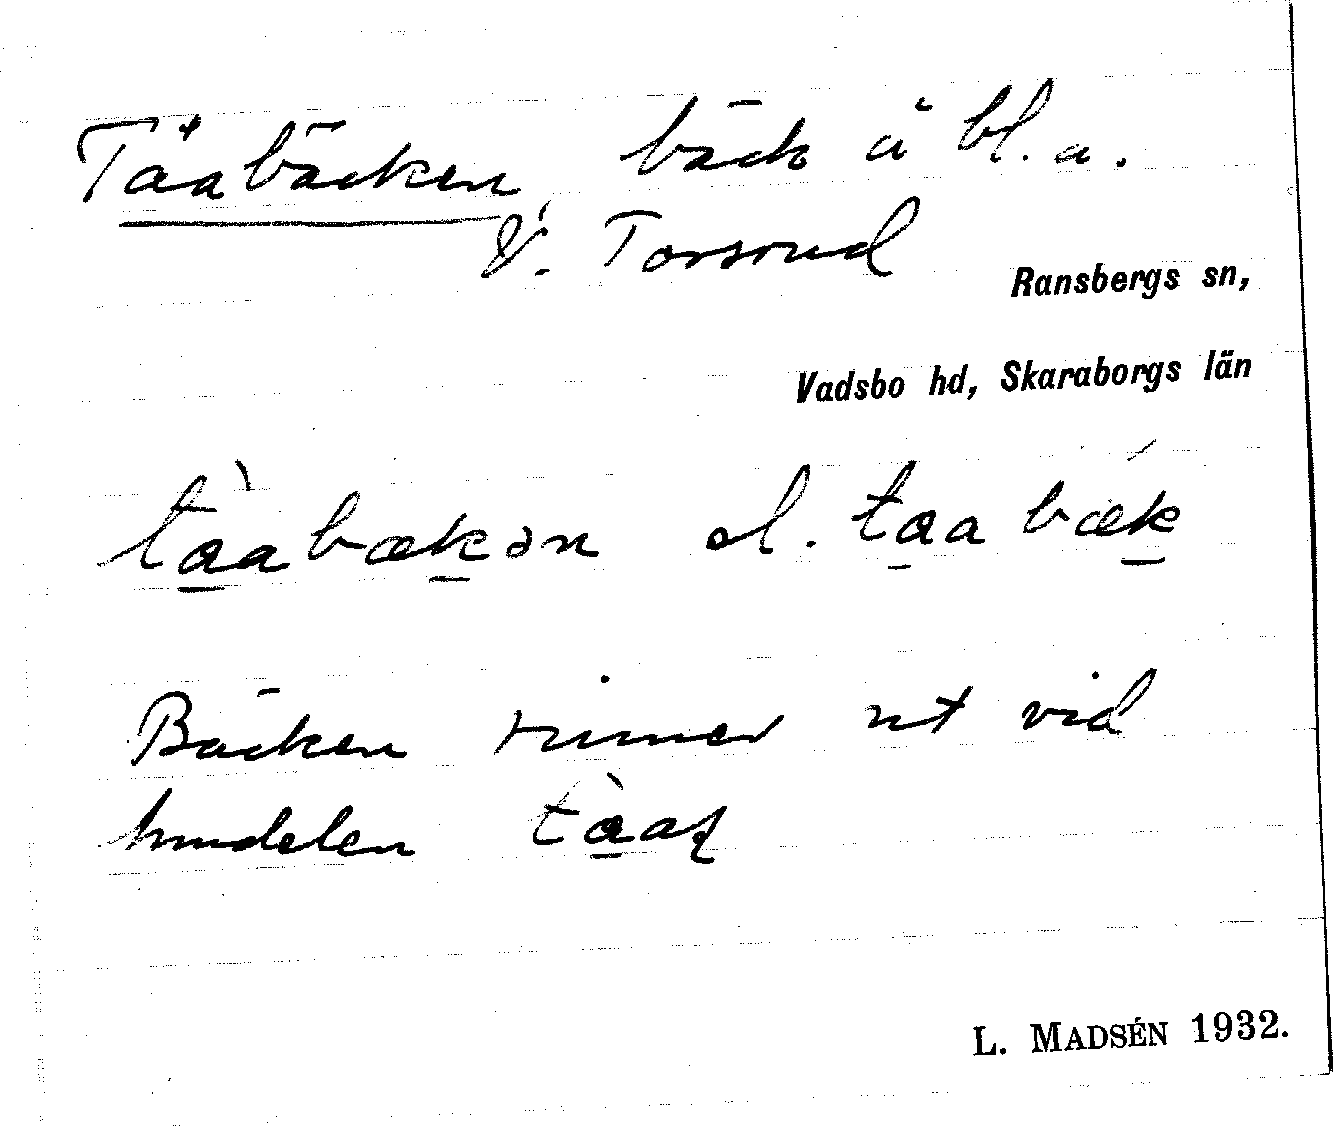 Tåabäcken, bäck å bl. a.
V. Torsrud
Ransbergs sn,
Vadsbo hd, Skaraborgs län
tàabækən el. taabǽk
Bäcken rinner ut vid
hmdelen tàaʒ
L. MADSÉN 1932.